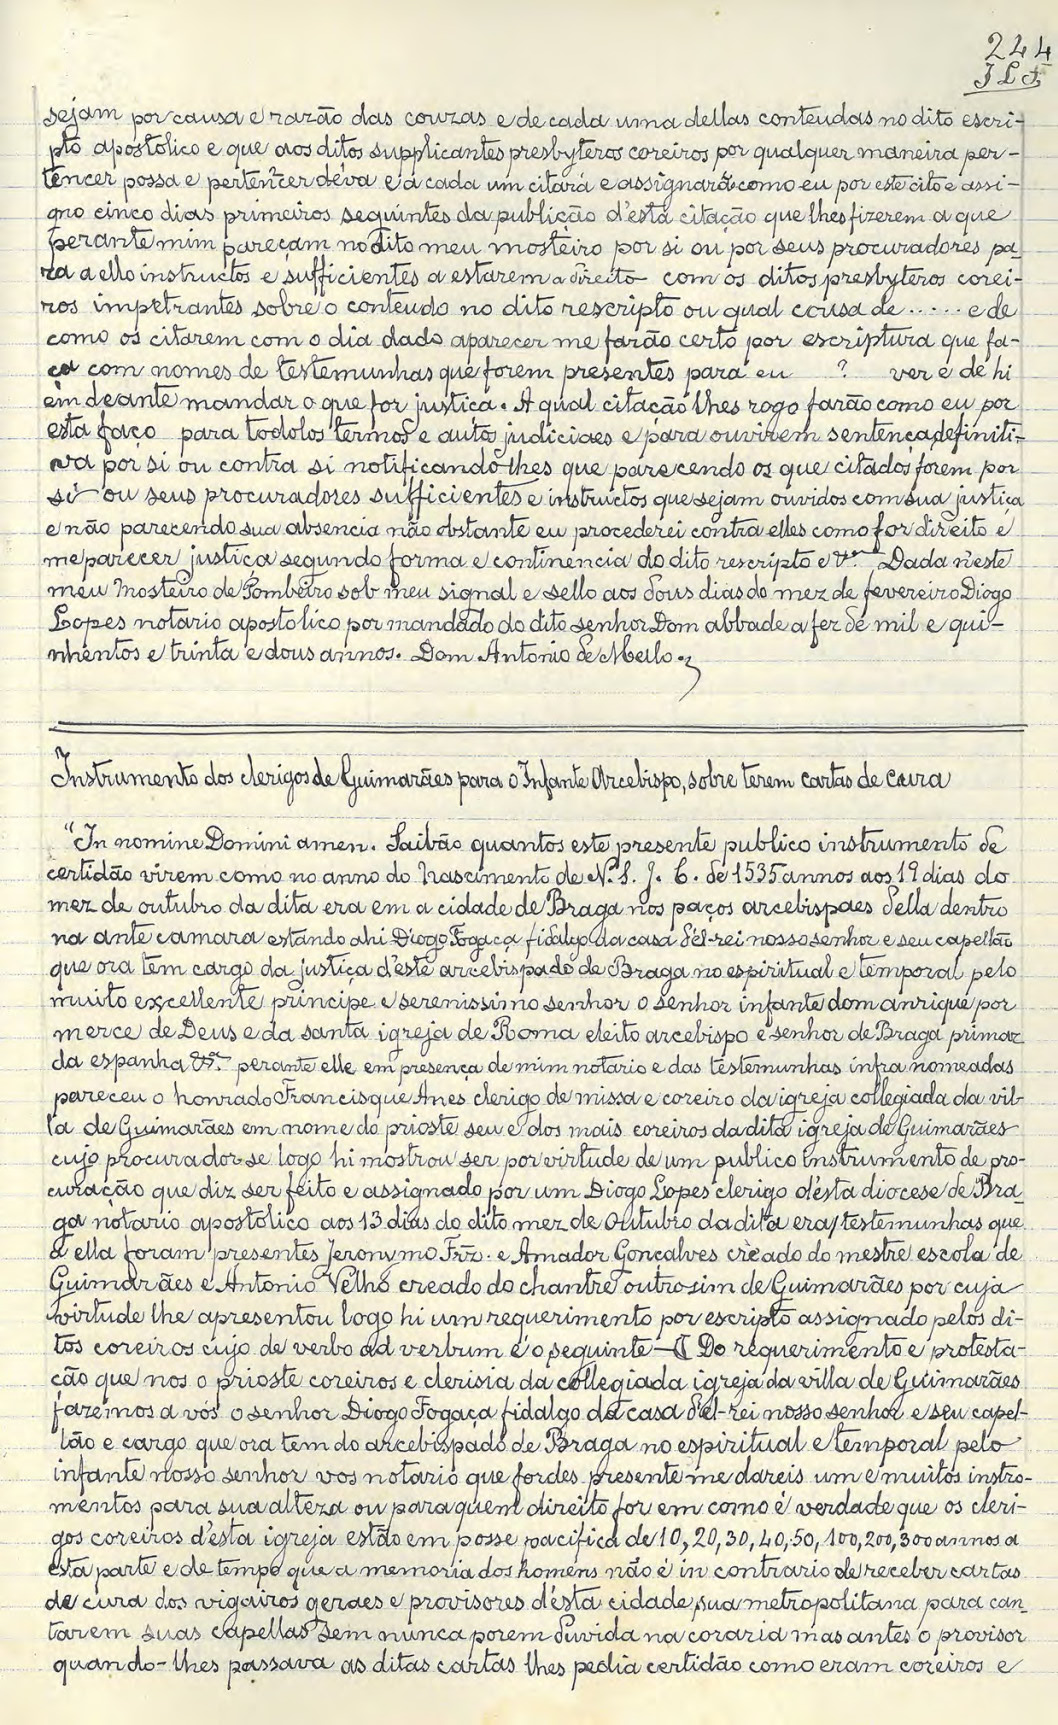 224
sejam por causa e razão das couzas e de cada uma dellas conteudas no dito escri-
pto apostolico e que aos ditos supplicantes presbyteros coreiros por qualquer maneira per-
tencer possa e pertencer deva e a cada um citará e assignará como eu por este cito e assi-
gno cinco dias primeiros seguintes da publição d'esta citação que lhes fizerem a que
perante mim pareçam no dito meu mosteiro por si ou por seus procuradores pa-
ra a ello instructos e sufficientes a estarem a direito com os ditos presbyteros corei-
ros impetrantes sobre o conteudo no dito rescripto ou qual cousa de ..... e de
como os citarem com o dia dado aparecer me farão certo por escriptura que fa-
ça com nomes de testemunhas que forem presentes para eu ? ver e de hi
em deante mandar o que for justiça. A qual citação lhes rogo farão como eu por
esta faço para todolos termos e autos judiciaes e para ouvirem sentença definiti-
va por si ou contra si notificando-lhes que parecendo os que citados forem por
si ou seus procuradores sufficientes e instructos que sejam ouvidos com sua justiça
e não parecendo sua absencia não obstante eu procederei contra elles como for direito e
me parecer justiça segundo forma e continencia do dito rescripto e &.ª Dada n'este
meu Mosteiro de Pombeiro sob meu signal e sello aos dous dias do mez de fevereiro Diogo
Lopes notario apostolico por mandado do dito senhor Dom abbade a fez de mil e qui-
nhentos e trinta e dous annos. Dom Antonio de Mello.
Instrumento dos clerigos de Guimarães para o Infante Arcebispo, sobre terem cartas de cura
"In nomine Domini amen. Saibão quantos este presente publico instrumento de
certidão virem como no anno do Nascimento de N. S. J. C. de 1535 annos aos 19 dias do
mez de outubro da dita era em a cidade de Braga nos paços arcebispaes della dentro
na ante camara estando ahi Diogo Fogaça fidalgo da casa d'el-rei nosso senhor e seu capellão
que ora tem cargo da justiça d'este arcebispado de Braga no espiritual e temporal pelo
muito excellente principe e serenissimo senhor o senhor infante dom anrique por
merce de Deus e da santa igreja de Roma eleito arcebispo e senhor de Braga primaz
da espanha &.ª perante elle em presença de mim notario e das testemunhas infra nomeadas
pareceu o honrado Francisque Anes clerigo de missa e coreiro da igreja collegiada da vil-
la de Guimarães em nome do prioste seu e dos mais coreiros da dita igreja de Guimarães
cujo procurador se logo hi mostrou ser por virtude de um publico instrumento de pro-
curação que diz ser feito e assignado por um Diogo Lopes clerigo d'esta diocese de Bra-
ga notario apostolico aos 13 dias do dito mez de Outubro da dita era, testemunhas que
a ella foram presentes Jeronymo Frz. e Amador Gonçalves creado do mestre escola de
Guimarães e Antonio Velho creado do chantre outro-sim de Guimarães por cuja
virtude lhe apresentou logo hi um requerimento por escripto assignado pelos di-
tos coreiros cujo de verbo ad verbum é o seguinte — Do requerimento e protesta-
ção que nos o prioste coreiros e clerisia da collegiada igreja da villa de Guimarães
fazemos a vós o senhor Diogo Fogaça fidalgo da casa d'el-rei nosso senhor e seu capel-
lão e cargo que ora tem do arcebispado de Braga no espiritual e temporal pelo
infante nosso senhor vos notario que fordes presente me dareis um e muitos instro-
mentos para sua alteza ou para quem direito for em como é verdade que os cleri-
gos coreiros d'esta igreja estão em posse pacifica de 10, 20, 30, 40, 50, 100, 200, 300 annos a
esta parte e de tempo que a memoria dos homens não é in contrario de receber cartas
de cura dos vigairos geraes e provisores d'esta cidade sua metropolitana para can-
tarem suas capellas sem nunca porem duvida na coraria mas antes o provisor
quando-lhes passava as ditas cartas lhes pedia certidão como eram coreiros e